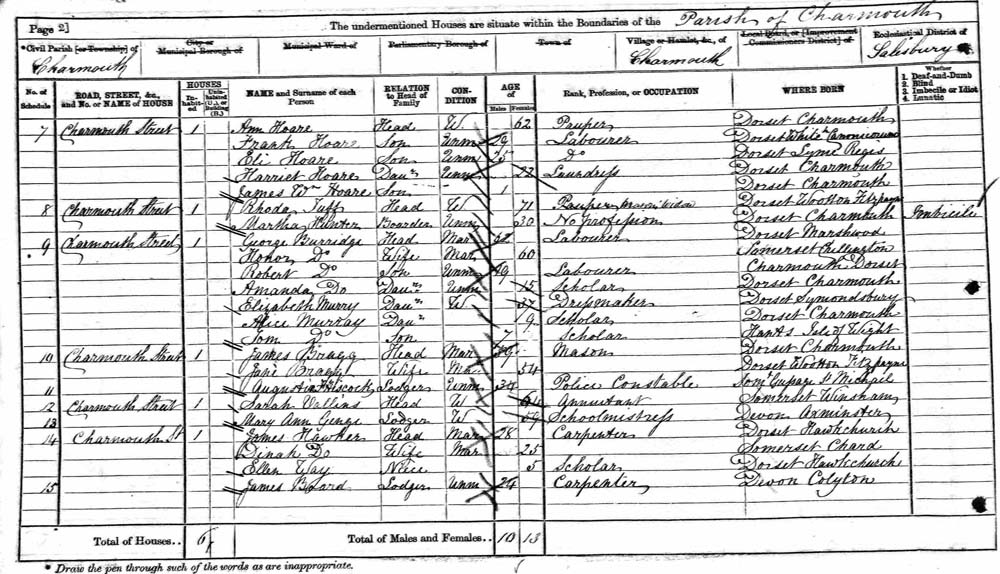 Page 2] The undermentioned Houses are situate within the Boundaries of the Parish of Charmouth
*Civil Parish [or Township] of City or Municipal Borough of Municipal Ward of Parliamentary Borough of Town of Village or Hamlet, &c., of Local Board, or [Improvement Commissioners District] of Ecclesiastical District of
Charmouth Charmouth Salisbury
No. of Schedule ROAD, STREET, &c., and No. or NAME of HOUSE HOUSES Inhabited Uninhabited (U.), or Building (B.) NAME and Surname of each Person RELATION to Head of Family CONDITION AGE of Males Females Rank, Profession, or OCCUPATION WHERE BORN Whether 1. Deaf-and-Dumb 2. Blind 3. Imbecile or Idiot 4. Lunatic
7 Charmouth Street 1 Ann Hoare Head W 62 Pauper Dorset Charmouth
Frank Hoare Son Unm 29 Labourer Dorset Whitch Canonicorum
Eli Hoare Son Unm 25 Do Dorset Lyme Regis
Harriet Hoare Daur Unm 22 Laundress Dorset Charmouth
James Wm Hoare Son 1 Dorset Charmouth
8 Charmouth Street 1 Rhoda Tuff Head W 71 Pauper Mason's Widow Dorset Wootton Fitzpayne
Martha Hunter Boarder Unm 30 No Profession Dorset Charmouth Imbicile
9 Charmouth Street 1 George Burridge Head Mar Labourer Dorset Marshwood
Honor Do Wife Mar 60 Somerset
Robert Do Son Unm 19 Labourer Charmouth Dorset
Amanda Do Daur Unm 15 Scholar Dorset Charmouth
Elizabeth Murry Daur W 37 Dressmaker Dorset Symondsbury
Alice Murray Daur 9 Scholar Dorset Charmouth
Tom Do Son 7 Scholar Hants Isle of Wight
10 Charmouth Street 1 James Bragg Head Mar 49 Mason Dorset Charmouth
Jane Bragg Wife Mar 54 Dorset Wootton Fitzpayne
11 Augustin Hiscock Lodger Unm 34 Police Constable Som St Michael
12 Charmouth Street 1 Sarah Wallins Head W 64 Annuitant Somerset Winsham
13 Mary Ann Genge Lodger W 59 Schoolmistress Devon Axminster
14 Charmouth St 1 James Hawker Head Mar 28 Carpenter Dorset Hawkchurch
Dinah Do Wife Mar 25 Somerset Chard
Ellen Way Niece 5 Scholar Dorset Hawkchurch
15 James Board Lodger Unm 24 Carpenter Devon Colyton
Total of Houses.. 6 Total of Males and Females.. 10 13
* Draw the pen through such of the words as are inappropriate.